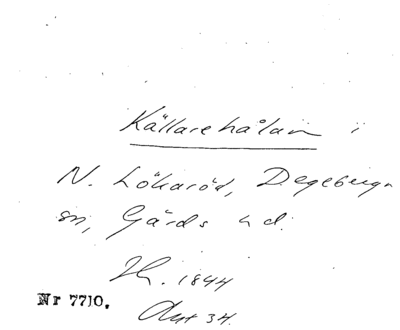 Källarehålan i
N. Lökaröd, Degeberga
sn, Gärds hd.
1844
Nr 7710.
34.